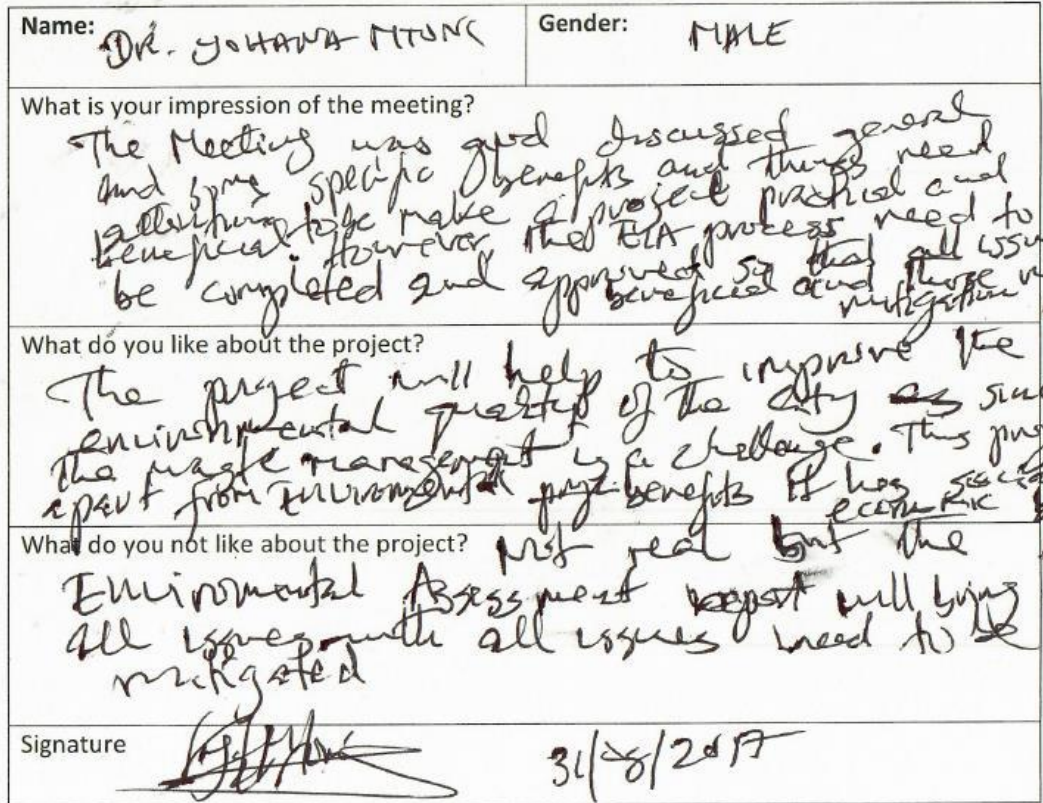 Name: DR. YOHANA MTONI Gender: MALE
What is your impression of the meeting?
The Meeting was good discussed general
and some specific benefits and things need
to be make a project practical and
beneficial. However, the EIA process need to
be completed and approved so that all issu
beneficial and those
mitigation
What do you like about the project?
The project will help to improve the
environmental quality of the city sinc
The waste management is a challenge. This proj
apart from Environmental benefits it has soci
economic
What do you not like about the project? Not real but the
Environmental Assessment report will bring
all issues with all issues need to be
mitigated
Signature 31/08/2017